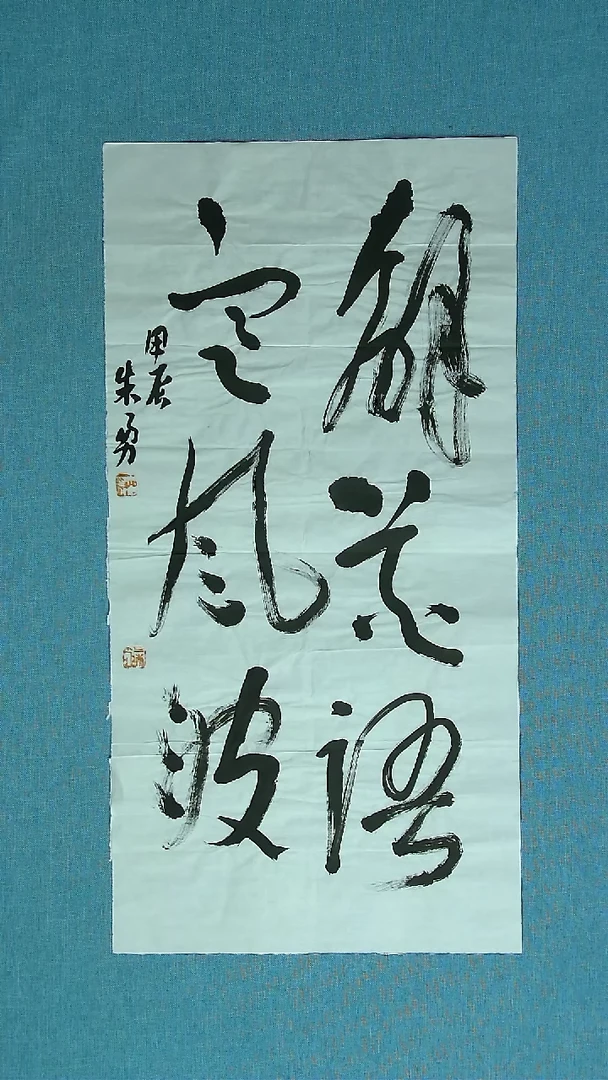 解花語
定風波
甲辰
朱勇